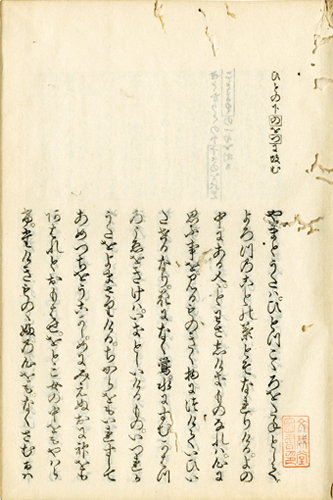 ひとの下のをつに改む
やまとうたハひとつこゝろをたねとして
よろつのことの葉とそなれりけるよの
中にある人ことわさ志けきものなれハ心に
思ふ事を見るものきく物につけていひい
たせるなり花になく鶯水にすむかはつ
のこゑをきけハいきとしいけるものいつれか
うたをよまさりけるちからをもいれすして
あめつちをうこかしめにみえぬおに神をも
あはれとおもはせをとこ女の中をもやはら
たけきものゝふの心をもなくさむるハ